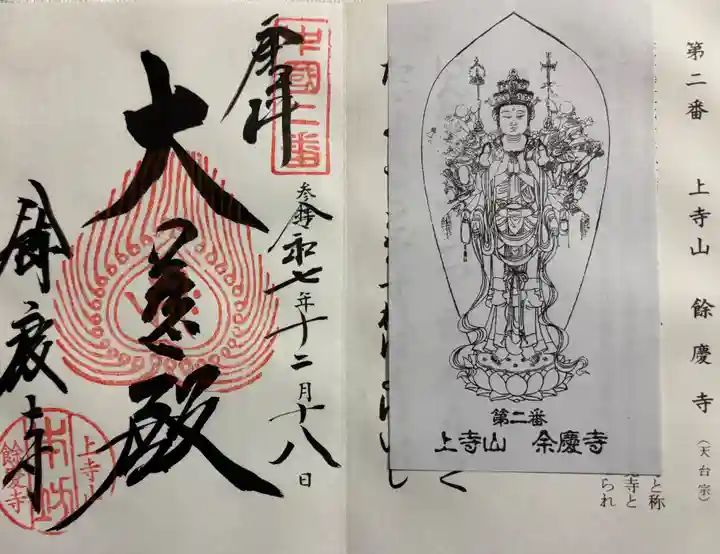 第二番 上寺山 餘慶寺 (天台宗)
と称
寺と
られ
第二番
上寺山 余慶寺
中國二番
奉拜
参拝
令和七年十二月十八日
大悲殿
餘慶寺
上寺山
餘慶寺